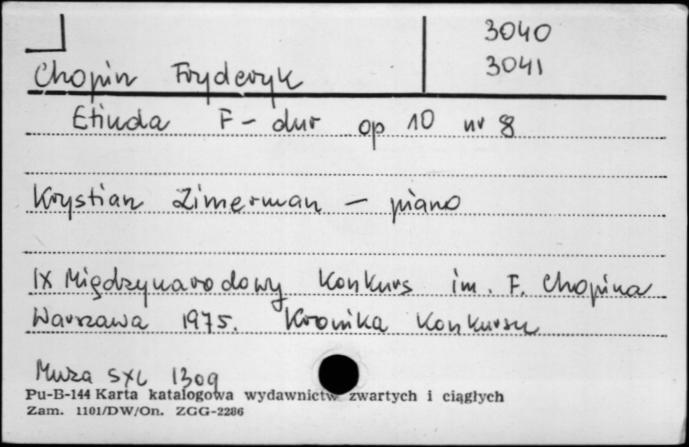 3040
3041
Chopin Fryderyk
Etiuda F-dur op 10 nr 8
Krystian Zimerman - piano
IX Międzynarodowy Konkurs im. F. Chopina
Warszawa 1975. Kronika Konkursu
Muza SXL 1309
Pu-B-144 Karta katalogowa wydawnictw zwartych i ciągłych
Zam. 1101/DW/On. ZGG-2286